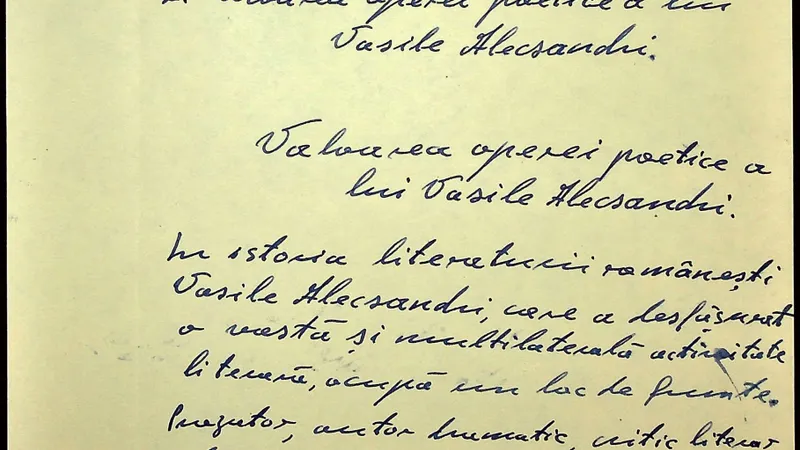 operei poetice a lui
Vasile Alecsandri.
Valoarea operei poetice a
lui Vasile Alecsandri.
In istoria literaturii românești
Vasile Alecsandri, care a desfășurat
o vastă și multilaterală activitate
literară, ocupă un loc de frunte.
Prozator, autor dramatic, critic literar